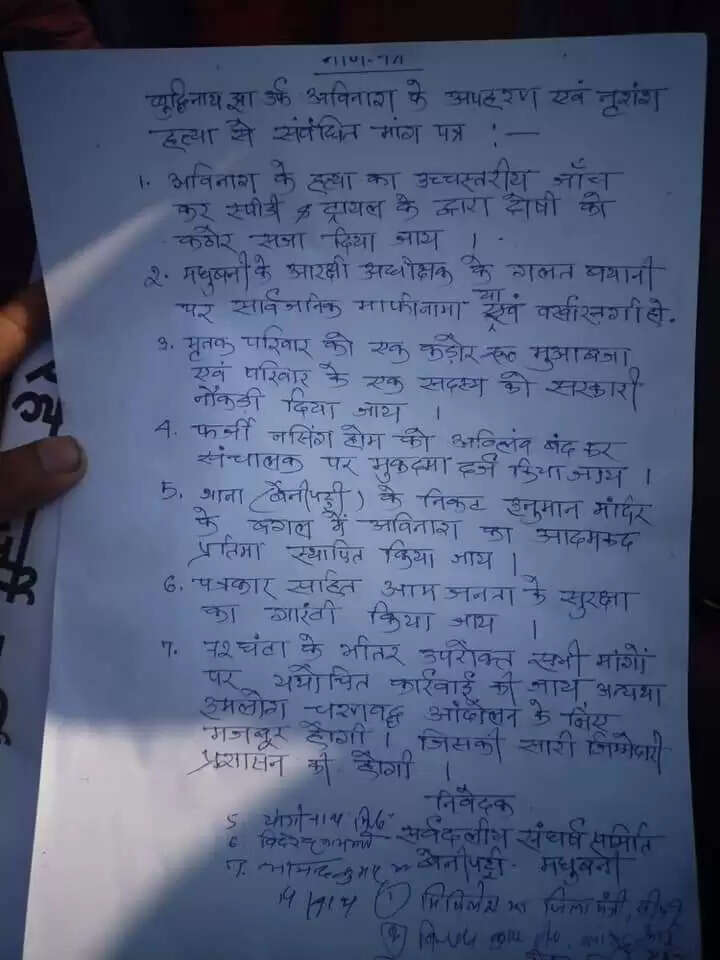 माँग-पत्र
बुद्धिनाथ झा उर्फ अविनाश के अपहरण एवं नृशंश
हत्या से संबंधित मांग पत्र : —
1. अविनाश के हत्या का उच्चस्तरीय जाँच
कर स्पीडी ट्रायल के द्वारा दोषी को
कठोर सजा दिया जाय ।
2. मधुबनी के आरक्षी अधीक्षक के गलत बयानी
पर सार्वजनिक माफीनामा या एवं बर्खास्तगी हो.
3. मृतक परिवार को एक कड़ोर रू० मुआवजा
एवं परिवार के एक सदस्य को सरकारी
नौकड़ी दिया जाय ।
4. फर्जी नर्सिंग होम को अविलंब बंद कर
संचालक पर मुकदमा दर्ज किया जाय ।
5. थाना (बेनीपट्टी) के निकट हनुमान मंदिर
के बगल में अविनाश का आदमकद
प्रतिमा स्थापित किया जाय ।
6. पत्रकार सहित आम जनता के सुरक्षा
का गारंटी किया जाय ।
7. 72 घंटा के भीतर उपरोक्त सभी मांगों
पर यथोचित कार्रवाई की जाय अन्यथा
हमलोग चरणवद्ध आंदोलन के लिए
मजबूर होगी । जिसकी सारी जिम्मेदारी
प्रशासन की होगी ।
निवेदक
सर्वदलीय संघर्ष समिति
बेनीपट्टी मधुबनी
5.
6.
7.
(1) मिथिलेश झा जिला मंत्री